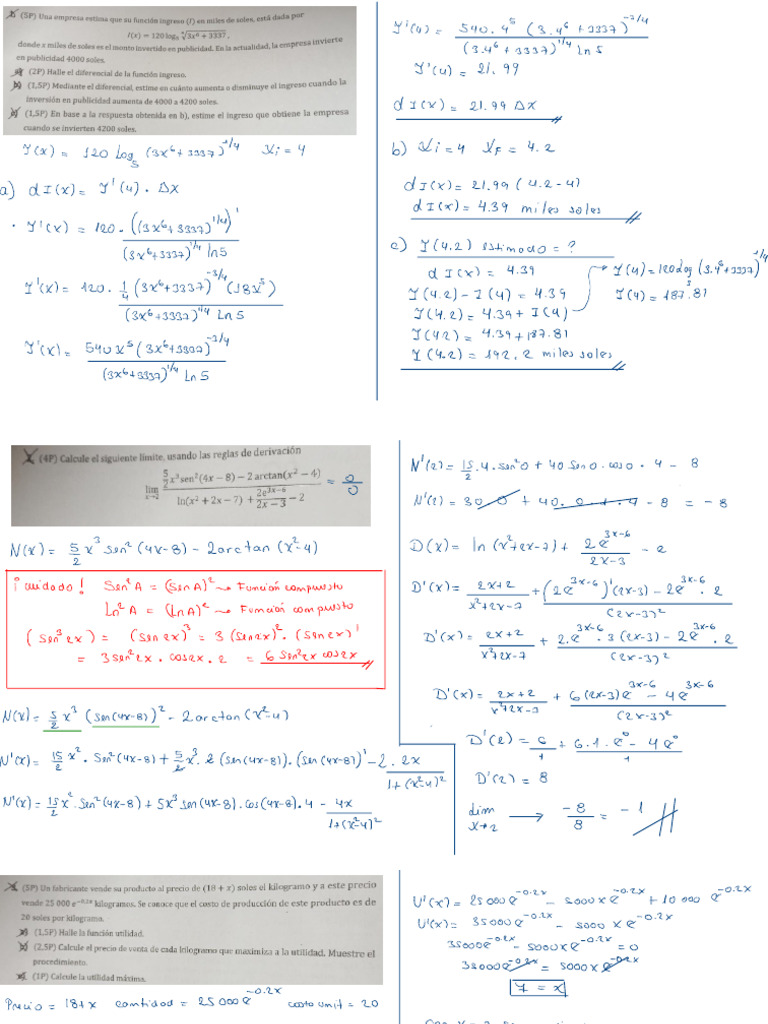 (5P) Una empresa estima que su función ingreso (I) en miles de soles, está dada por
I(x) = 120 log₅ ⁴√(3x⁶ + 3337),
donde x miles de soles es el monto invertido en publicidad. En la actualidad, la empresa invierte
en publicidad 4000 soles.
a) (2P) Halle el diferencial de la función ingreso.
b) (1,5P) Mediante el diferencial, estime en cuánto aumenta o disminuye el ingreso cuando la
inversión en publicidad aumenta de 4000 a 4200 soles.
c) (1,5P) En base a la respuesta obtenida en b), estime el ingreso que obtiene la empresa
cuando se invierten 4200 soles.
I(x) = 120 log₅ (3x⁶+3337)^1/4 xi = 4
a) dI(x) = I'(4) · Δx
· I'(x) = 120 · ((3x⁶+3337)^1/4)' / (3x⁶+3337)^1/4 ln5
I'(x) = 120 · 1/4 (3x⁶+3337)^-3/4 (18x⁵) / (3x⁶+3337)^1/4 Ln5
I'(x) = 540x⁵(3x⁶+3307)^-3/4 / (3x⁶+3337)^1/4 Ln5
I'(4) = 540.4⁵ (3.4⁶+3337)^-3/4 / (3.4⁶+3337)^1/4 ln5
I'(4) = 21.99
dI(x) = 21.99 Δx
b) xi = 4 xF = 4.2
dI(x) = 21.99 (4.2-4)
dI(x) = 4.39 miles soles
c) I(4.2) estimado = ?
dI(x) = 4.39
I(4.2) - I(4) = 4.39
I(4.2) = 4.39 + I(4)
I(4.2) = 4.39 + 187.81
I(4.2) = 192,2 miles soles
I(4) = 120log(3.4⁶+3337)^1/4
I(4) = 187.81
(4P) Calcule el siguiente límite, usando las reglas de derivación
lim x→2 (5/2 x³sen²(4x − 8) − 2 arctan(x² − 4)) / (ln(x² + 2x − 7) + 2e^(3x−6)/(2x − 3) − 2) = 0/0
N(x) = 5/2 x³ sen²(4x-8) - 2arctan(x²-4)
¡cuidado! Sen²A = (SenA)² → Función compuesto
Ln²A = (LnA)² → Función compuesto
(sen³2x) = (sen2x)³ = 3(sen2x)² · (sen2x)'
= 3sen²2x · cos2x · 2 = 6 sen²2x cos2x
N(x) = 5/2 x³ (sen(4x-8))² - 2arctan(x²-4)
N'(x) = 15/2 x² · Sen²(4x-8) + 5/2 x³ · 2 (sen(4x-8)) · (sen(4x-8))' - 2 · 2x / 1+(x²-4)²
N'(x) = 15/2 x² · Sen²(4x-8) + 5x³ sen(4x-8) · cos(4x-8) · 4 - 4x / 1+(x²-4)²
N'(2) = 15/2 · 4 · sen²0 + 40 sen0 · cos0 · 4 - 8
N'(2) = 30 · 0 + 40 · 0 · 1 · 4 - 8 = -8
D(x) = ln(x²+2x-7) + 2e^3x-6 / 2x-3 - 2
D'(x) = 2x+2 / x²+2x-7 + (2e^3x-6)'(2x-3) - 2e^3x-6 · 2 / (2x-3)²
D'(x) = 2x+2 / x²+2x-7 + 2.e^3x-6 · 3(2x-3) - 2e^3x-6 · 2 / (2x-3)²
D'(x) = 2x+2 / x²+2x-3 + 6(2x-3)e^3x-6 - 4e^3x-6 / (2x-3)²
D'(2) = 6/1 + 6.1.e⁰ - 4e⁰ / 1
D'(2) = 8
lim x→2 → -8/8 = -1
(5P) Un fabricante vende su producto al precio de (18 + x) soles el kilogramo y a este precio
vende 25 000 e^−0,2x kilogramos. Se conoce que el costo de producción de este producto es de
20 soles por kilogramo.
a) (1,5P) Halle la función utilidad.
b) (2,5P) Calcule el precio de venta de cada kilogramo que maximiza a la utilidad. Muestre el
procedimiento.
c) (1P) Calcule la utilidad máxima.
Precio = 18+x cantidad = 25000e^-0.2x costo unit = 20
U'(x) = 25000e^-0.2x - 5000xe^-0.2x + 10 000 e^-0.2x
U'(x) = 35000e^-0.2x - 5000 x e^-0.2x
35000e^-0.2x - 5000xe^-0.2x = 0
35000e^-0.2x = 5000xe^-0.2x
7 = x